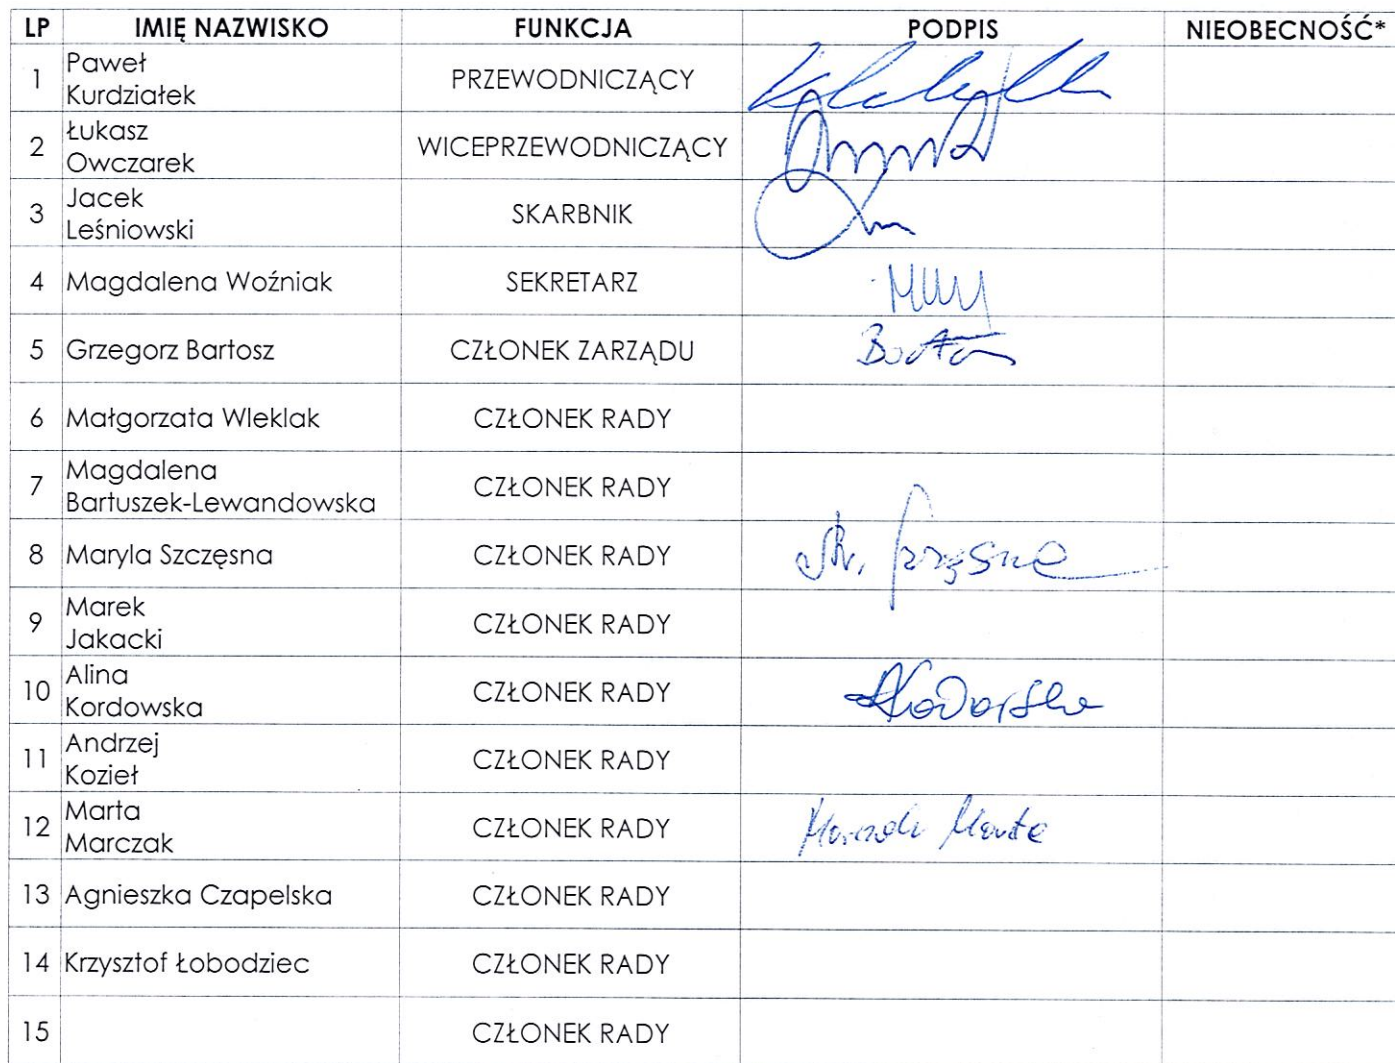 LP IMIĘ NAZWISKO FUNKCJA PODPIS NIEOBECNOŚĆ*
1 Paweł Kurdziałek PRZEWODNICZĄCY
2 Łukasz Owczarek WICEPRZEWODNICZĄCY
3 Jacek Leśniowski SKARBNIK
4 Magdalena Woźniak SEKRETARZ
5 Grzegorz Bartosz CZŁONEK ZARZĄDU
6 Małgorzata Wleklak CZŁONEK RADY
7 Magdalena Bartuszek-Lewandowska CZŁONEK RADY
8 Maryla Szczęsna CZŁONEK RADY
9 Marek Jakacki CZŁONEK RADY
10 Alina Kordowska CZŁONEK RADY
11 Andrzej Kozieł CZŁONEK RADY
12 Marta Marczak CZŁONEK RADY Marczak Marta
13 Agnieszka Czapelska CZŁONEK RADY
14 Krzysztof Łobodziec CZŁONEK RADY
15 CZŁONEK RADY